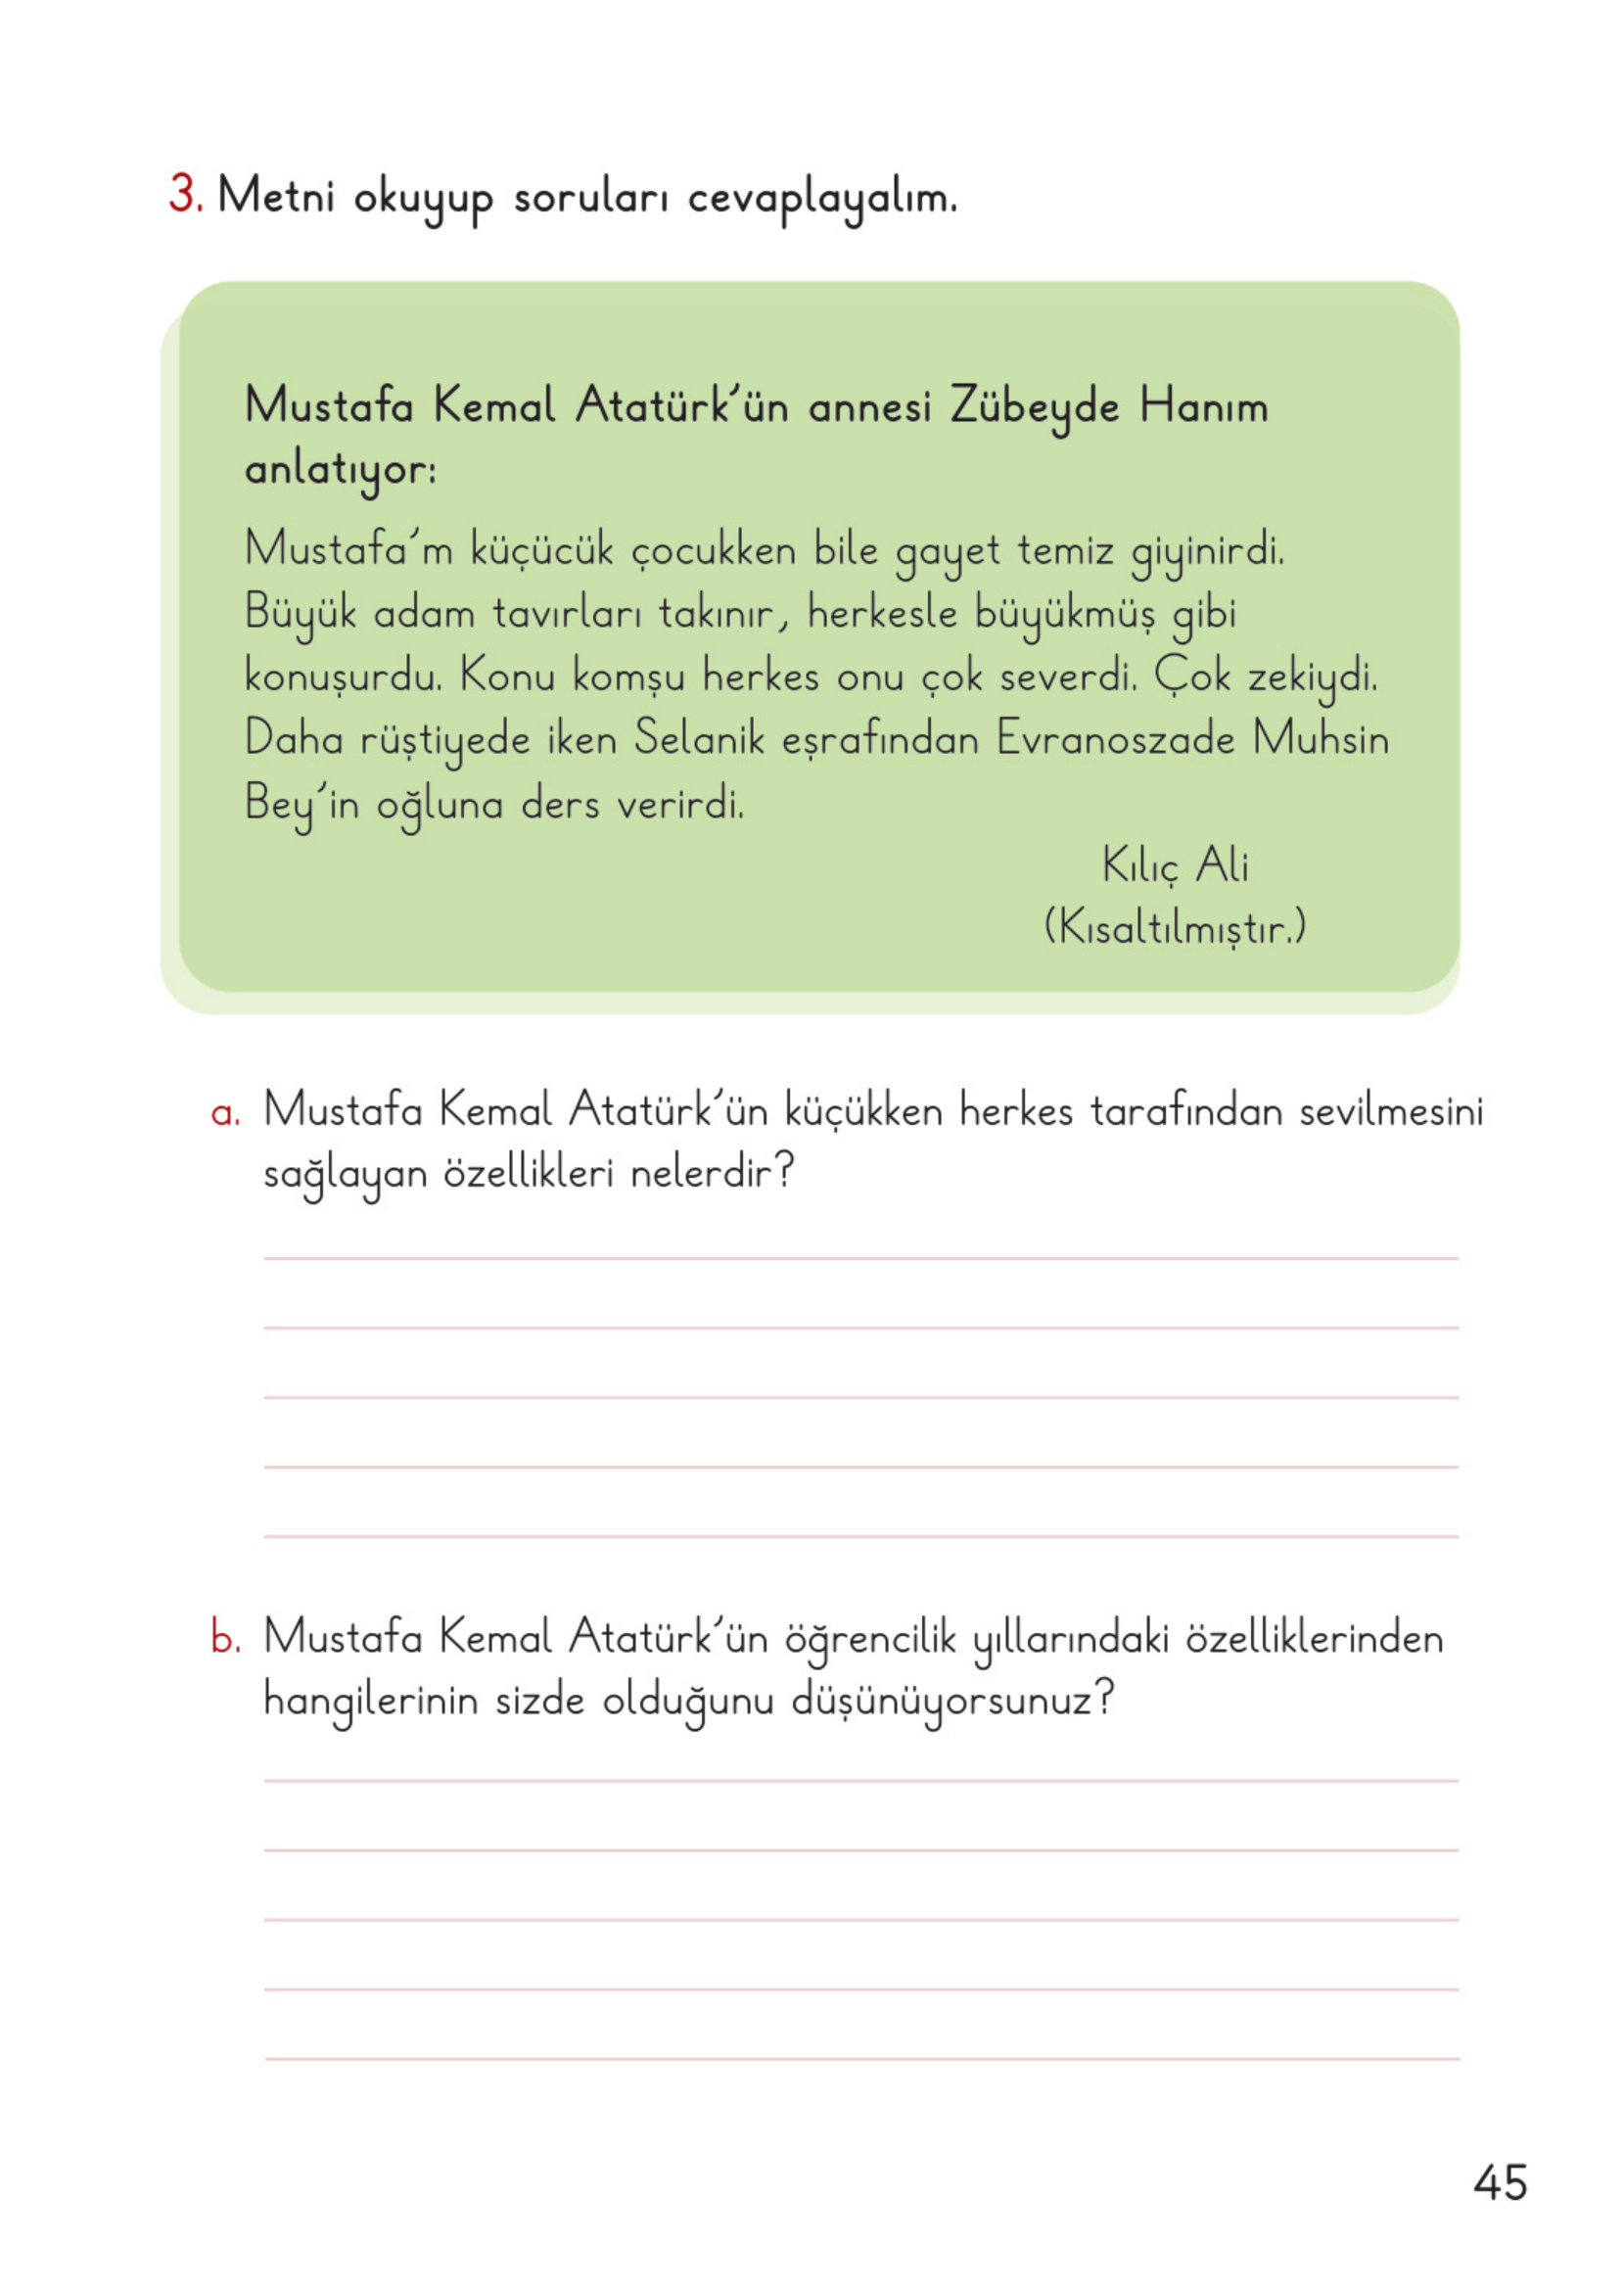 3. Metni okuyup soruları cevaplayalım.
Mustafa Kemal Atatürk'ün annesi Zübeyde Hanım
anlatıyor:
Mustafa'm küçücük çocukken bile gayet temiz giyinirdi.
Büyük adam tavırları takınır, herkesle büyükmüş gibi
konuşurdu. Konu komşu herkes onu çok severdi. Çok zekiydi.
Daha rüştiyede iken Selanik eşrafından Evranoszade Muhsin
Bey'in oğluna ders verirdi.
Kılıç Ali
(Kısaltılmıştır.)
a. Mustafa Kemal Atatürk'ün küçükken herkes tarafından sevilmesini
sağlayan özellikleri nelerdir?
b. Mustafa Kemal Atatürk'ün öğrencilik yıllarındaki özelliklerinden
hangilerinin sizde olduğunu düşünüyorsunuz?
45